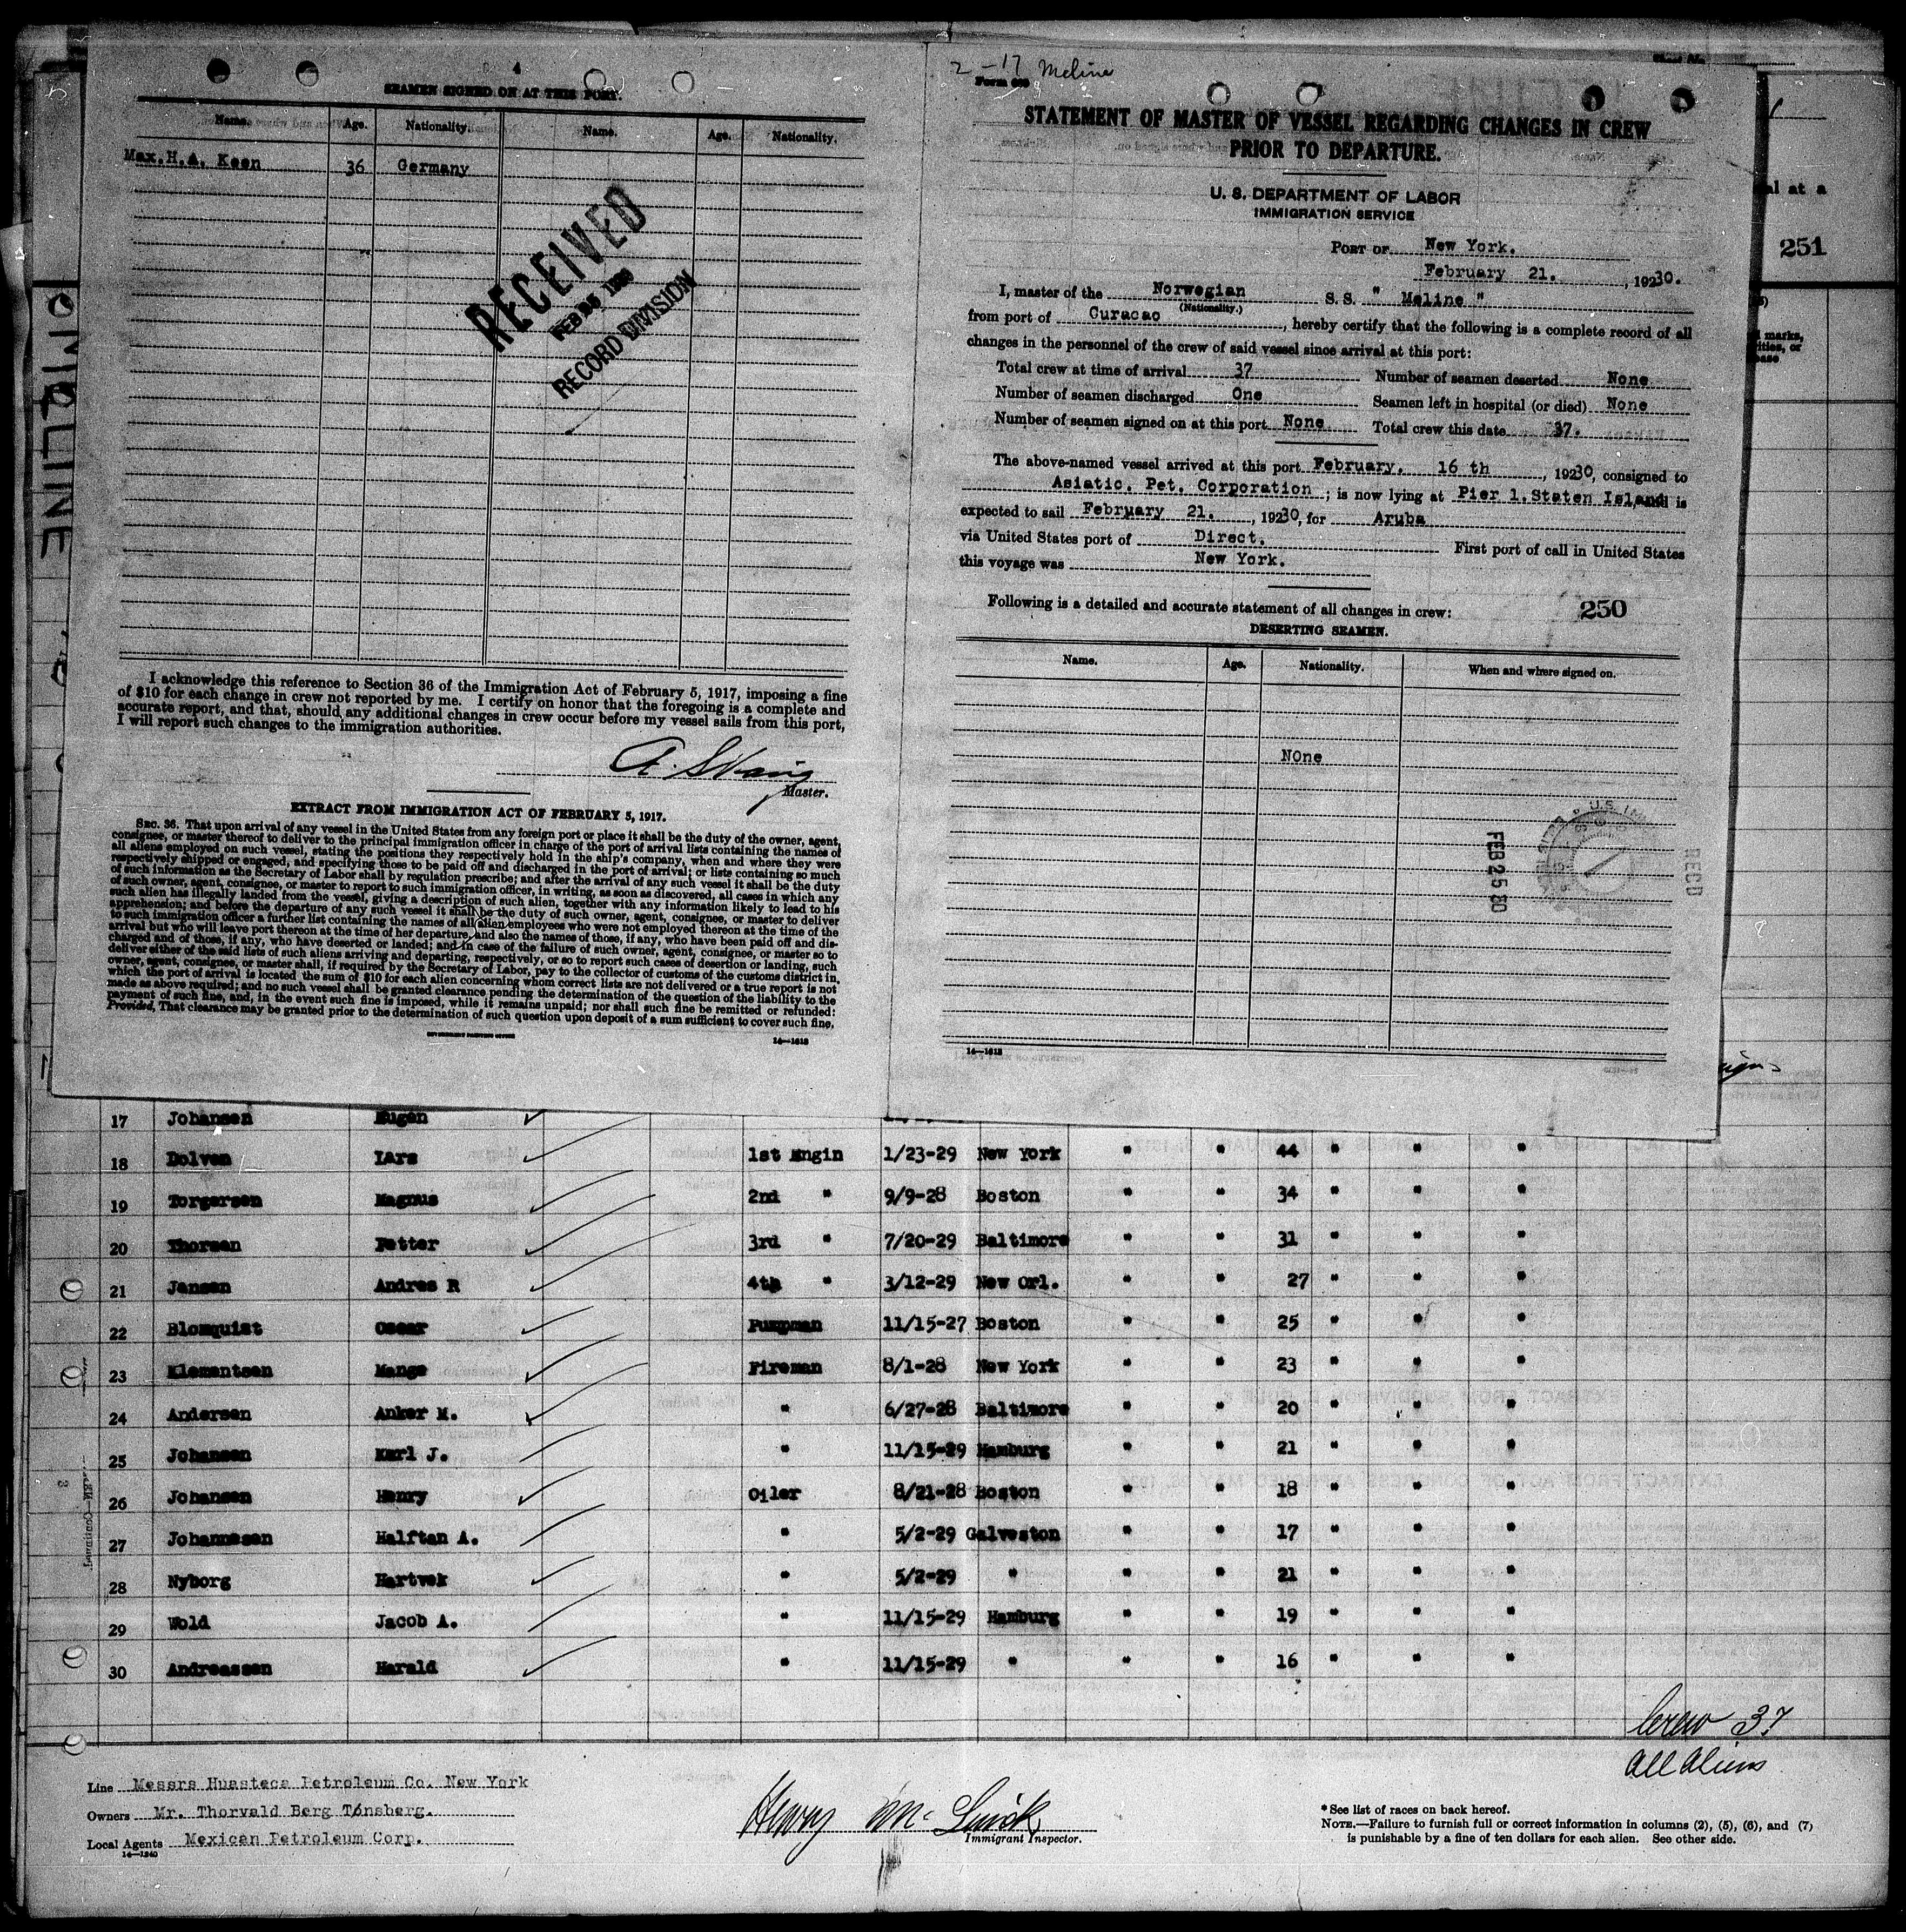 SEAMEN SIGNED ON AT THIS PORT.
Name. Age. Nationality. Name. Age. Nationality.
Max.H.A. Keen 36 Germany
RECEIVED
FEB 25 1930
RECORD DIVISION
I acknowledge this reference to Section 36 of the Immigration Act of February 5, 1917, imposing a fine
of $10 for each change in crew not reported by me. I certify on honor that the foregoing is a complete and
accurate report, and that, should any additional changes in crew occur before my vessel sails from this port,
I will report such changes to the immigration authorities.
Master.
EXTRACT FROM IMMIGRATION ACT OF FEBRUARY 5, 1917.
SEC. 36. That upon arrival of any vessel in the United States from any foreign port or place it shall be the duty of the owner, agent,
consignee, or master thereof to deliver to the principal immigration officer in charge of the port of arrival lists containing the names of
all aliens employed on such vessel, stating the positions they respectively hold in the ship's company, when and where they were
respectively shipped or engaged, and specifying those to be paid off and discharged in the port of arrival; or lists containing so much
of such information as the Secretary of Labor shall by regulation prescribe; and after the arrival of any such vessel it shall be the duty
of such owner, agent, consignee, or master to report to such immigration officer, in writing, as soon as discovered, all cases in which any
such alien has illegally landed from the vessel, giving a description of such alien, together with any information likely to lead to his
apprehension; and before the departure of any such vessel it shall be the duty of such owner, agent, consignee, or master to deliver
to such immigration officer a further list containing the names of all alien employees who were not employed thereon at the time of the
arrival but who will leave port thereon at the time of her departure, and also the names of those, if any, who have been paid off and dis-
charged and of those, if any, who have deserted or landed; and in case of the failure of such owner, agent, consignee, or master so to
deliver either of the said lists of such aliens arriving and departing, respectively, or so to report such cases of desertion or landing, such
owner, agent, consignee, or master shall, if required by the Secretary of Labor, pay to the collector of customs of the customs district in
which the port of arrival is located the sum of $10 for each alien concerning whom correct lists are not delivered or a true report is not
made as above required; and no such vessel shall be granted clearance pending the determination of the question of the liability to the
payment of such fine, and, in the event such fine is imposed, while it remains unpaid; nor shall such fine be remitted or refunded:
Provided, That clearance may be granted prior to the determination of such question upon deposit of a sum sufficient to cover such fine.
GOVERNMENT PRINTING OFFICE
14—1618
2-17 Meline
STATEMENT OF MASTER OF VESSEL REGARDING CHANGES IN CREW
PRIOR TO DEPARTURE.
U. S. DEPARTMENT OF LABOR
IMMIGRATION SERVICE
PORT OF New York.
February 21. , 1930.
I, master of the Norwegian S. S. " Meline "
(Nationality.)
from port of Curacao , hereby certify that the following is a complete record of all
changes in the personnel of the crew of said vessel since arrival at this port:
Total crew at time of arrival 37 Number of seamen deserted None
Number of seamen discharged One Seamen left in hospital (or died) None
Number of seamen signed on at this port None Total crew this date 37.
The above-named vessel arrived at this port February. 16 th , 19230, consigned to
Asiatic. Pet. Corporation ; is now lying at Pier 1.Staten Island and is
expected to sail February 21. , 19230, for Aruba
via United States port of Direct. First port of call in United States
this voyage was New York.
Following is a detailed and accurate statement of all changes in crew: 250
DESERTING SEAMEN.
Name. Age. Nationality. When and where signed on.
NOne
FEB 25 30
RECD
14—1618
al at a
251
MELINE
17 Johansen Eugen
18 Dolven Lars 1st Engin 1/23-29 New York " " 44 " " "
19 Torgersen Magnus 2nd " 9/9-28 Boston " " 34 " " "
20 Thorsen Petter 3rd " 7/20-29 Baltimore " " 31 " " "
21 Jansen Andres R 4th " 3/12-29 New Orl. " " 27 " " "
22 Blomquist Oscar Pumpman 11/15-27 Boston " " 25 " " "
23 Klementsen Mange Fireman 8/1-28 New York " " 23 " " "
24 Andersen Anker M. " 6/27-28 Baltimore " " 20 " " "
25 Johansen Karl J. " 11/15-29 Hamburg " " 21 " " "
26 Johansen Henry Oiler 8/21-28 Boston " " 18 " " "
27 Johannesen Halftan A. " 5/2-29 Galveston " " 17 " " "
28 Nyborg Hartvek " 5/2-29 " " " 21 " " "
29 Wold Jacob A. " 11/15-29 Hamburg " " 19 " " "
30 Andreassen Harald " 11/15-29 " " " 16 " " "
Crew 37
All Aliens
Line Messrs Huasteca Petroleum Co. New York
Owners Mr. Thorvald Berg Tønsberg.
Local Agents Mexican Petroleum Corp.
14—1240
Henry
Immigrant Inspector.
*See list of races on back hereof.
NOTE.—Failure to furnish full or correct information in columns (2), (5), (6), and (7)
is punishable by a fine of ten dollars for each alien. See other side.